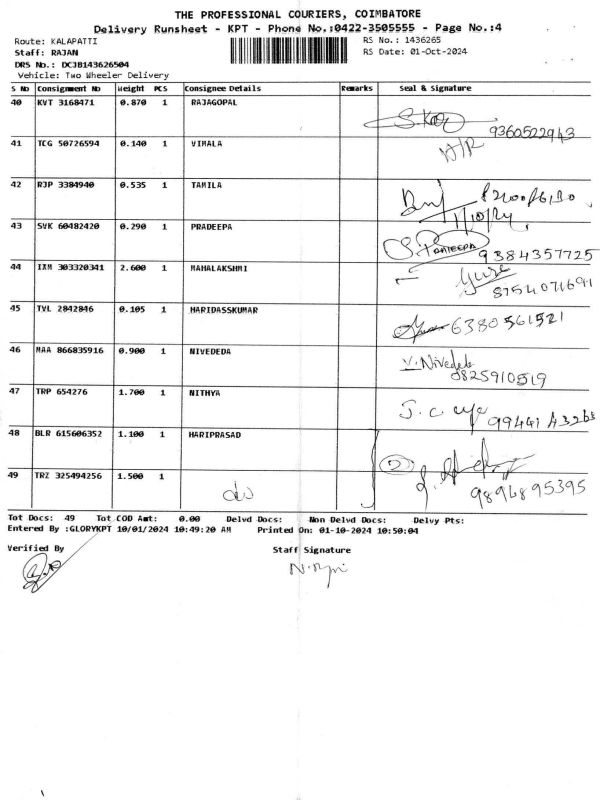 THE PROFESSIONAL COURIERS, COIMBATORE
Delivery Runsheet - KPT - Phone No.:0422-3505555 - Page No.:4
Route: KALAPATTI RS No.: 1436265
Staff: RAJAN RS Date: 01-Oct-2024
DRS No.: DCJB143626504
Vehicle: Two Wheeler Delivery
S No Consignment No Weight PCS Consignee Details Remarks Seal & Signature
40 KVT 3168471 0.870 1 RAJAGOPAL
9360522943
41 TCG 50726594 0.140 1 VIMALA
42 RJP 3384940 0.535 1 TAMILA
1/10/24
43 SVK 60482420 0.290 1 PRADEEPA
S. PRADEEPA 9384357725
44 IXM 303320341 2.600 1 MAHALAKSHMI
8754071691
45 TVL 2842846 0.105 1 HARIDASSKUMAR
6380561521
46 MAA 866835916 0.900 1 NIVEDEDA
V. Nivededa
9825910519
47 TRP 654276 1.700 1 NITHYA
48 BLR 615606352 1.100 1 HARIPRASAD
2
9894895395
49 TRZ 325494256 1.500 1
Tot Docs: 49 Tot COD Amt: 0.00 Delvd Docs: Non Delvd Docs: Delvy Pts:
Entered By :GLORYKPT 10/01/2024 10:49:20 AM Printed On: 01-10-2024 10:50:04
Verified By Staff Signature